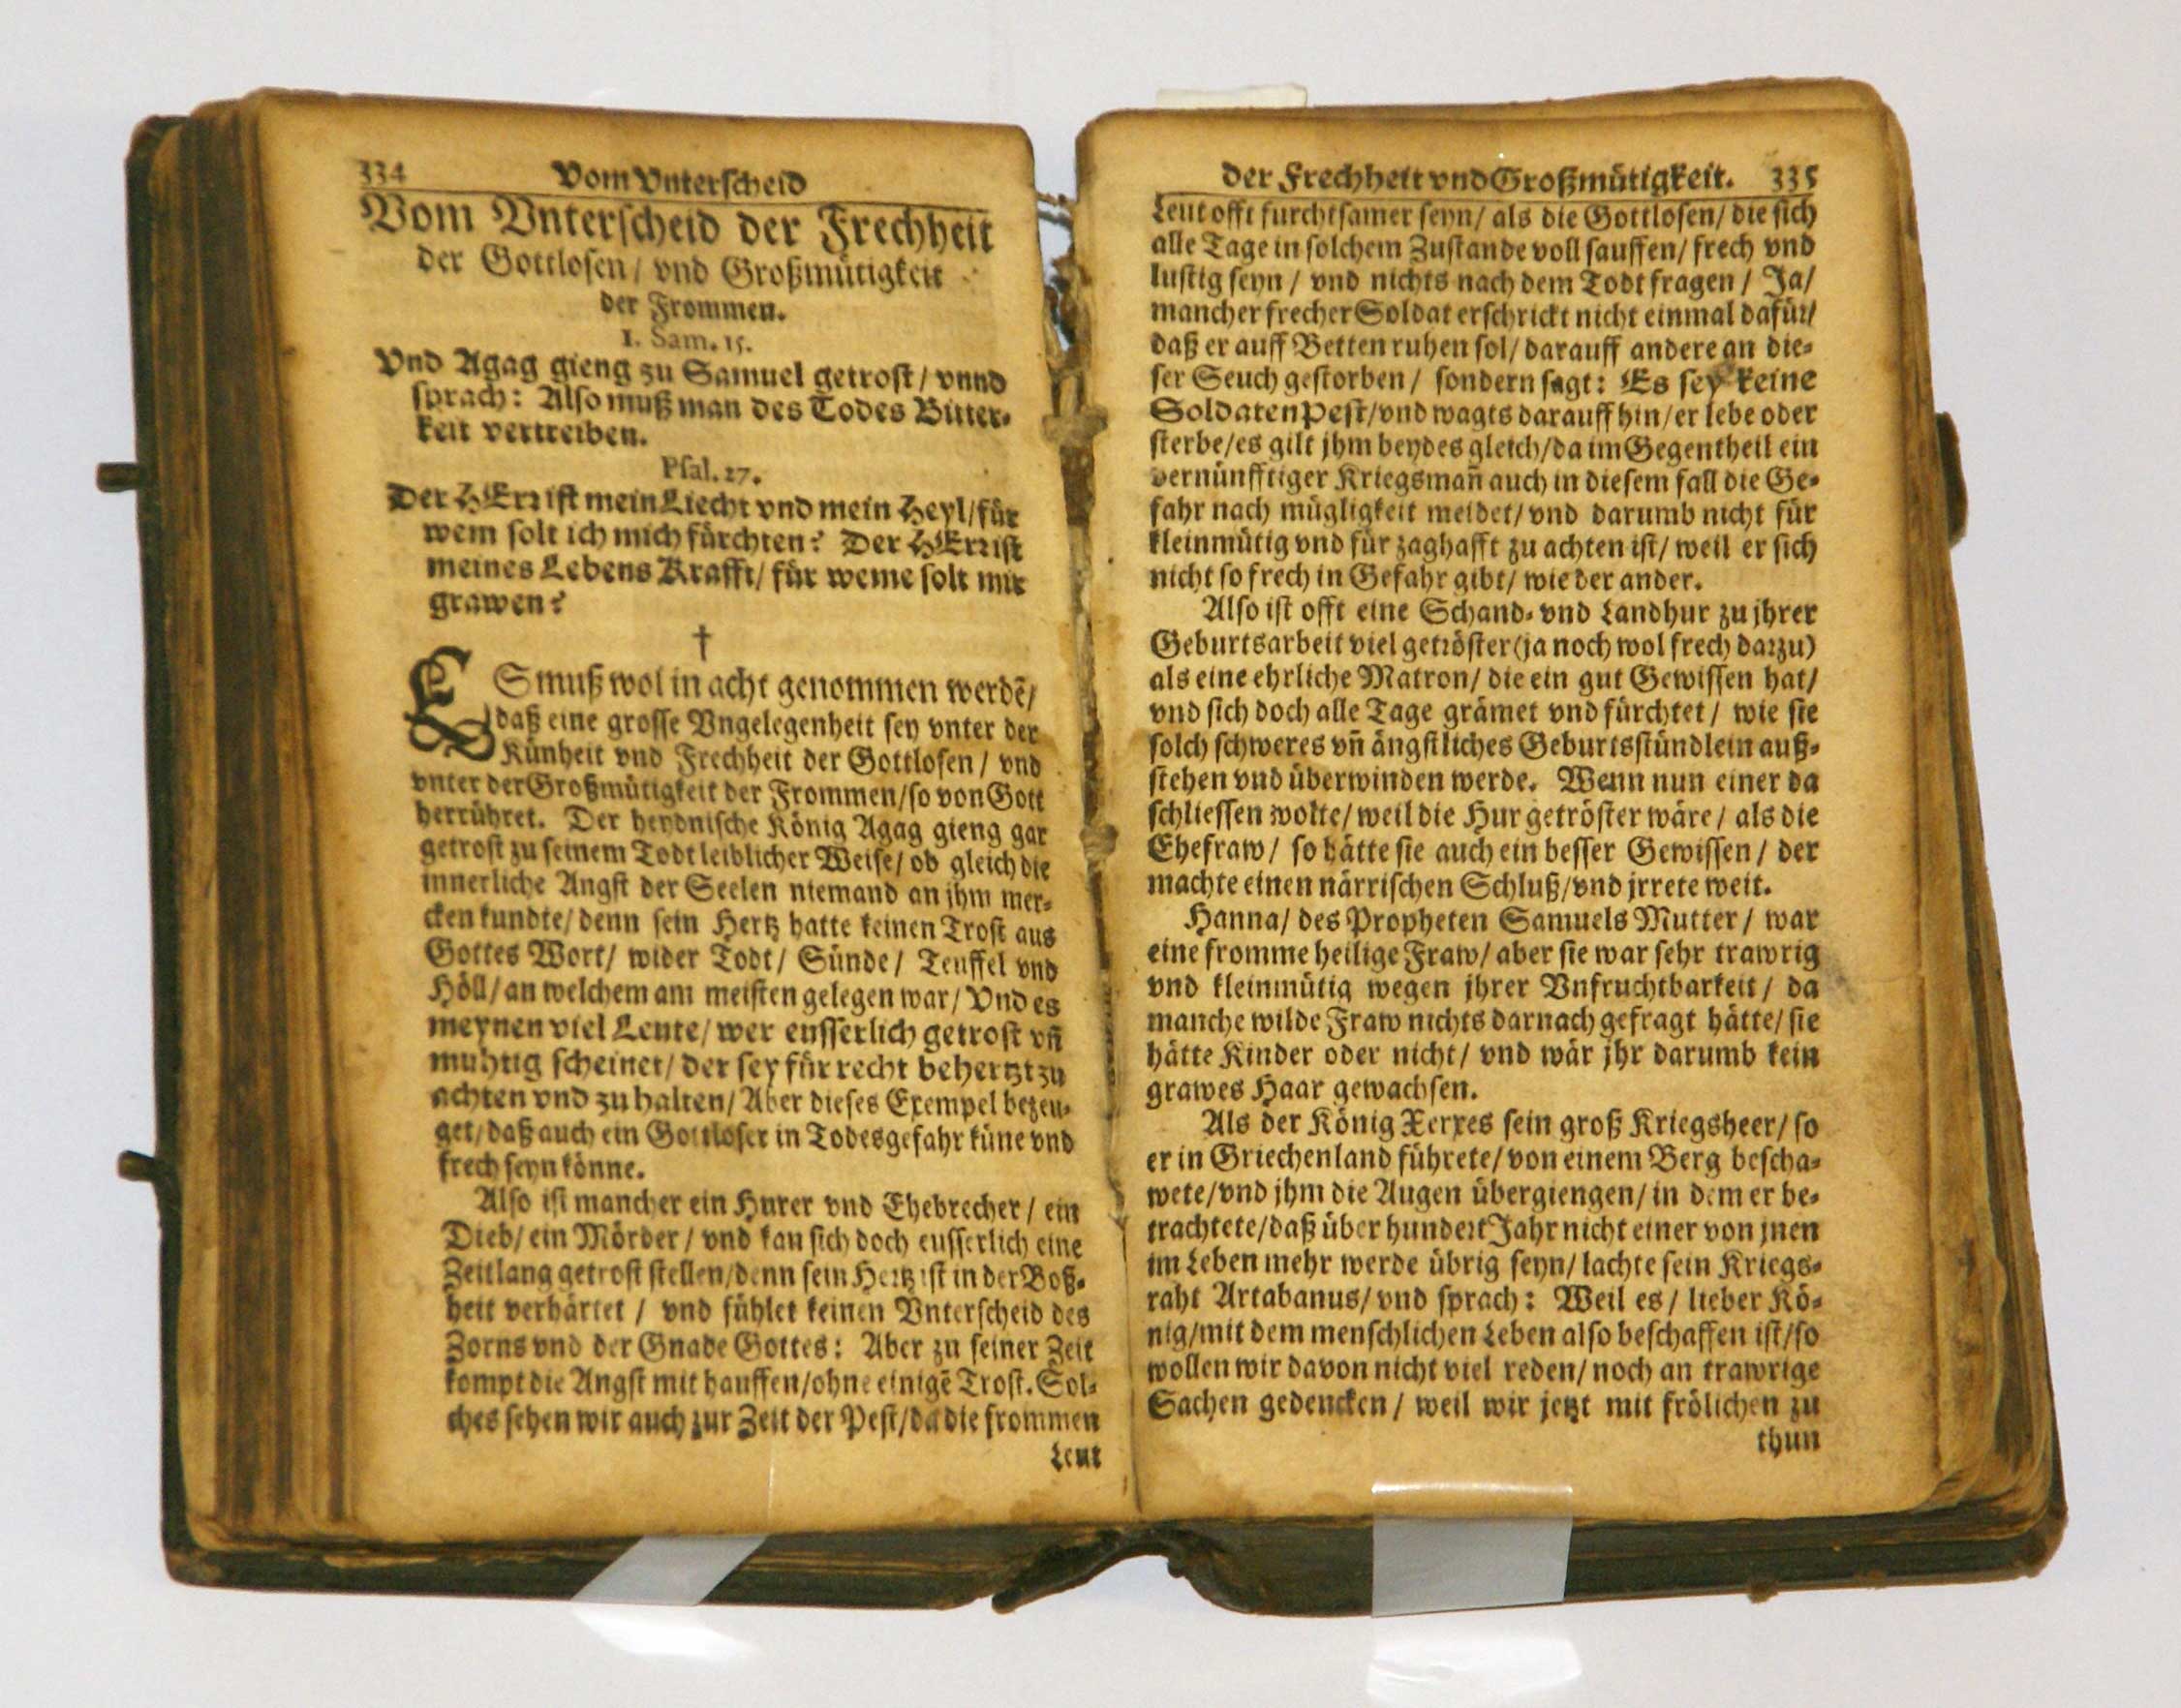 334 Vom Vnterscheid
Vom Vnterscheid der Frechheit
der Gottlosen / vnd Großmütigkeit
der Frommen.
1. Sam. 15.
Vnd Agag gieng zu Samuel getrost / vnnd
sprach: Also muß man des Todes Bitter-
keit vertreiben.
Psal. 27.
Der HErr ist mein Liecht vnd mein Heyl/für
wem solt ich mich fürchten? Der HErr ist
meines Lebens Krafft/ für weme solt mir
grawen?
†
ES muß wol in acht genommen werdē/
daß eine grosse Vngelegenheit sey vnter der
Künheit vnd Frechheit der Gottlosen / vnd
vnter der Großmütigkeit der Frommen/so von Gott
herrühret. Der heydnische König Agag gieng gar
getrost zu seinem Todt leiblicher Weise/ ob gleich die
innerliche Angst der Seelen niemand an jhm mer-
cken kundte/ denn sein Hertz hatte keinen Trost aus
Gottes Wort/ wider Todt/ Sünde/ Teuffel vnd
Höll/ an welchem am meisten gelegen war/ Vnd es
meynen viel Leute/ wer eusserlich getrost vn̄
muhtig scheinet/ der sey für recht behertzt zu
achten vnd zu halten/ Aber dieses Exempel bezeu-
get/ daß auch ein Gottloser in Todesgefahr küne vnd
frech seyn könne.
Also ist mancher ein Hurer vnd Ehebrecher / ein
Dieb/ ein Mörder / vnd kan sich doch eusserlich eine
Zeitlang getrost stellen/denn sein Hertz ist in der Boß-
heit verhärtet / vnd fühlet keinen Vnterscheid des
Zorns vnd der Gnade Gottes: Aber zu seiner Zeit
kompt die Angst mit hauffen/ohne einigē Trost. Sol-
ches sehen wir auch zur Zeit der Pest/da die frommen
Leut
der Frechheit vnd Großmütigkeit. 335
Leut offt furchtsamer seyn/ als die Gottlosen/ die sich
alle Tage in solchem Zustande voll sauffen/ frech vnd
lustig seyn / vnd nichts nach dem Todt fragen / Ja/
mancher frecher Soldat erschrickt nicht einmal dafür/
daß er auff Betten ruhen sol/ darauff andere an die-
ser Seuch gestorben / sondern sagt: Es sey keine
Soldaten Pest/vnd wagts darauff hin/er lebe oder
sterbe/es gilt jhm beydes gleich/da im Gegentheil ein
vernünfftiger Kriegsman̄ auch in diesem fall die Ge-
fahr nach mügligkeit meidet/ vnd darumb nicht für
kleinmütig vnd für zaghafft zu achten ist/ weil er sich
nicht so frech in Gefahr gibt/ wie der ander.
Also ist offt eine Schand- vnd Landhur zu jhrer
Geburtsarbeit viel getröster (ja noch wol frech darzu)
als eine ehrliche Matron/ die ein gut Gewissen hat/
vnd sich doch alle Tage grämet vnd fürchtet / wie sie
solch schweres vn̄ ängstliches Geburtsstündlein auß-
stehen vnd überwinden werde. Wenn nun einer da
schliessen wolte/ weil die Hur getröster wäre / als die
Ehefraw/ so hätte sie auch ein besser Gewissen / der
machte einen närrischen Schluß/vnd jrrete weit.
Hanna/ des Propheten Samuels Mutter / war
eine fromme heilige Fraw/ aber sie war sehr trawrig
vnd kleinmütig wegen jhrer Vnfruchtbarkeit / da
manche wilde Fraw nichts darnach gefragt hätte/ sie
hätte Kinder oder nicht/ vnd wär jhr darumb kein
grawes Haar gewachsen.
Als der König Xerxes sein groß Kriegsheer/ so
er in Griechenland führete/ von einem Berg bescha-
wete/vnd jhm die Augen übergiengen/ in dem er be-
trachtete/daß über hundert Jahr nicht einer von jnen
im Leben mehr werde übrig seyn/ lachte sein Kriegs-
raht Artabanus/ vnd sprach: Weil es / lieber Kö-
nig/mit dem menschlichen Leben also beschaffen ist/so
wollen wir davon nicht viel reden/ noch an trawrige
Sachen gedencken / weil wir jetzt mit frölichen zu
thun